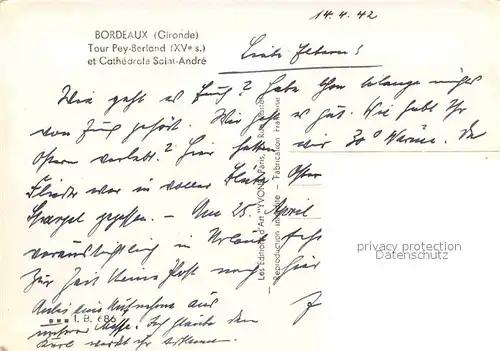 14.4.42
BORDEAUX (Gironde)
Tour Pey-Berland (XVe s.)
et Cathédrale Saint-André
Liebe Eltern!
Wie geht es Euch? Habe schon lange nichts
von Euch gehört. Mir geht es gut. Wie habt Ihr
Ostern verlebt? Hier hatten wir 30° Wärme. Der
Flieder war in voller Blüte. Ostern
Spargel gegessen. – Am 25. April
voraussichtlich in Urlaub
Zur Zeit keine Post nach hier
eine Aufnahme aus
unserer Ich glaube den
Karl werdet ihr erkennen.
I. B. 686
Les Éditions d'Art "YVON", Paris,
Reproduction interdite – Fabrication Française
privacy protection
oldthing.de